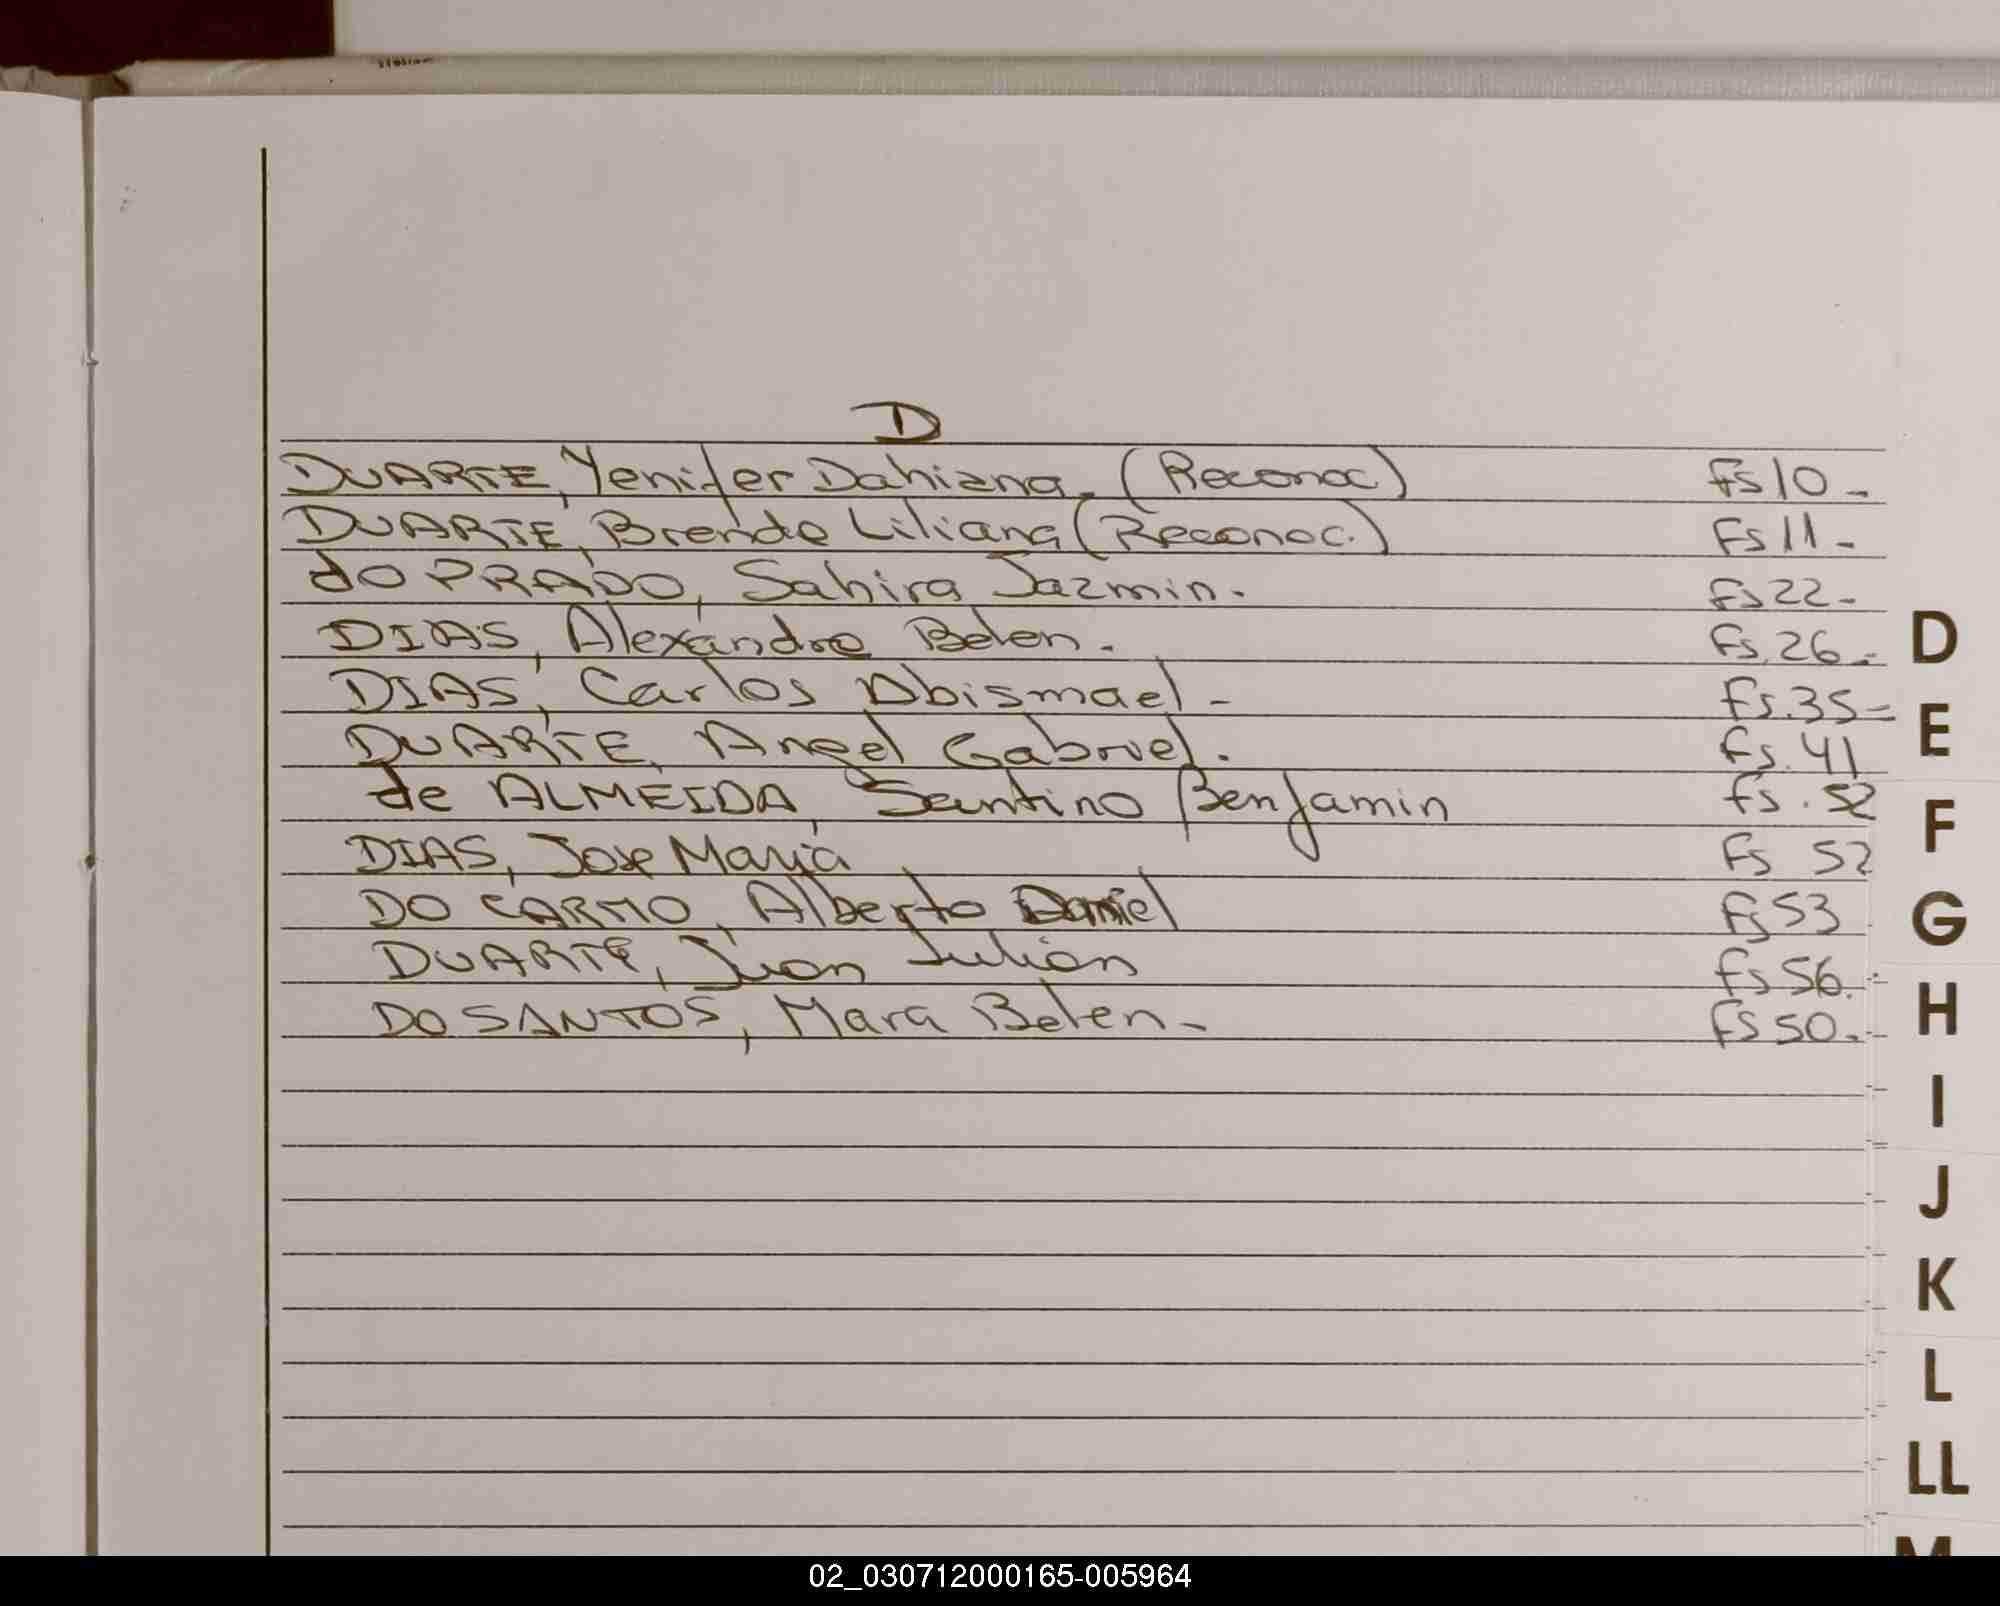 D
DUARTE, Yenifer Dahiana. (Reconoc) Fs 10 -
DUARTE, Brenda Liliana (Reconoc.) Fs 11 -
do PRADO, Sahira Jazmin. Fs 22 -
DIAS, Alexandra Belen. Fs. 26 -
DIAS, Carlos Abismael - Fs. 35 -
DUARTE, Angel Gabriel. Fs. 41
de ALMEIDA, Santino Benjamin Fs. 52
DIAS, Jose Maria Fs 52
DO CARMO, Alberto Daniel Fs 53
DUARTE, Juan Julian Fs 56.
DO SANTOS, Mara Belen - Fs 50.
D
E
F
G
H
I
J
K
L
LL
M
02_030712000165-005964